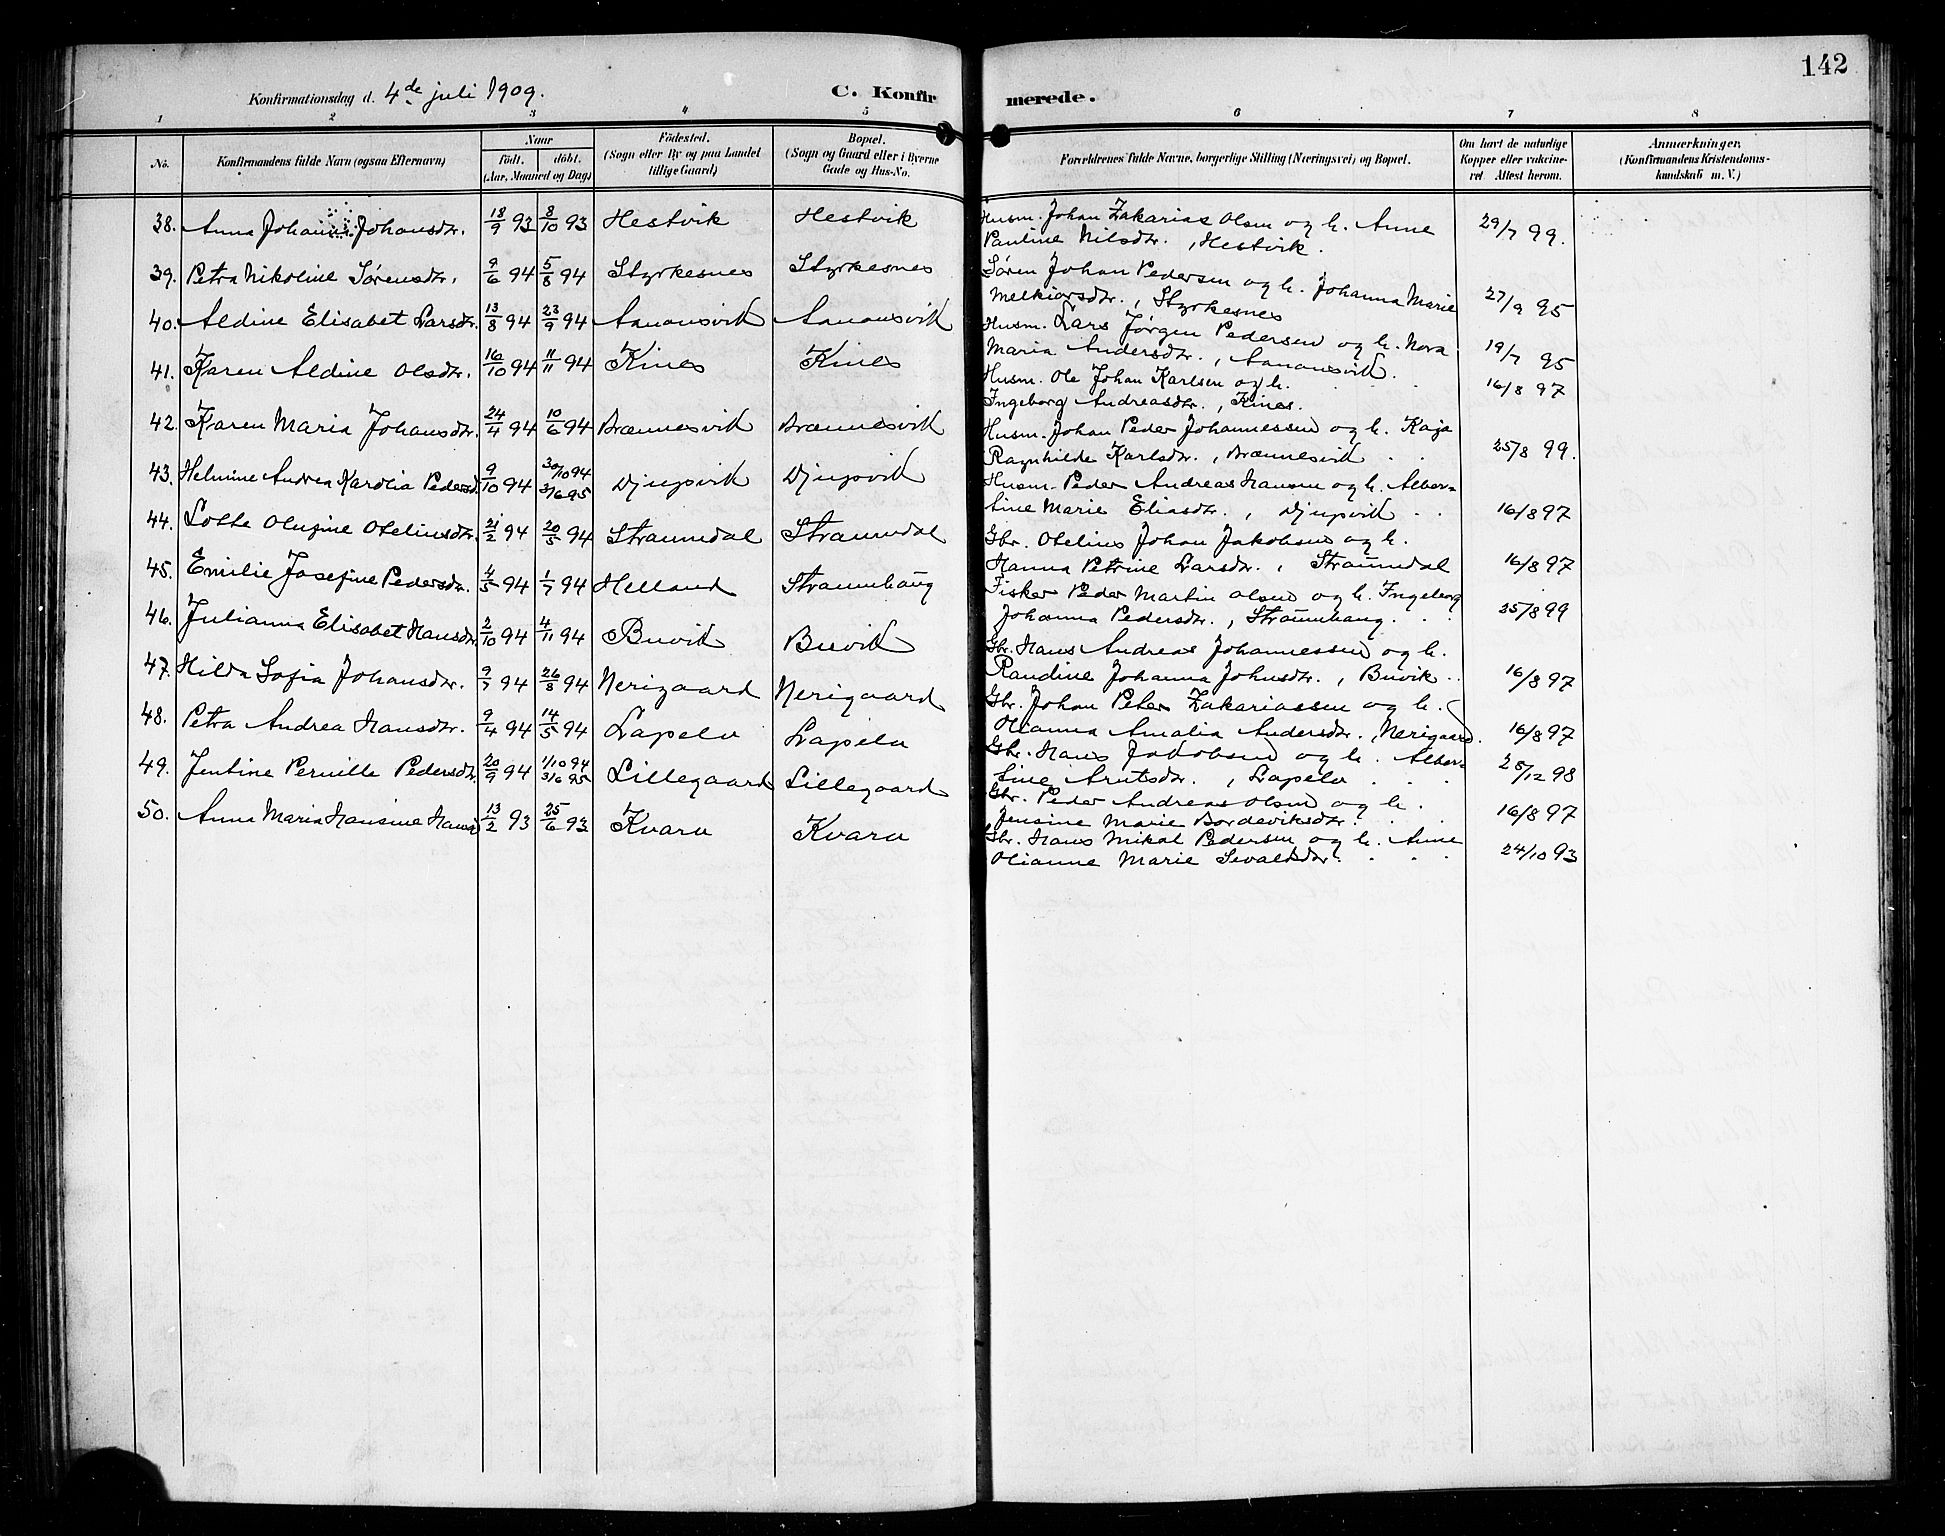 142
Konfirmationsdag d. 4de juli 1909.
C. Konfirmerede.
1 2 3 4 5 6 7 8
No.
Konfirmandens fulde Navn (ogsaa Efternavn)
Naar
født. døbt.
(Aar, Maaned og Dag)
Fødested.
(Sogn eller By og paa Landet
tillige Gaard)
Bopæl.
(Sogn og Gaard eller i Byerne
Gade og Hus-No.
Forældrenes fulde Navne, borgerlige Stilling (Næringsvei) og Bopæl.
Om havt de naturlige
Kopper eller vakcine-
ret. Attest herom.
Anmærkninger.
(Konfirmandens Kristendoms-
kundskab m. V.)
38. Anna Johanna Johansdtr. 18/9 93 8/10 93 Hestvik Hestvik Husm. Johan Zakarias Olsen og h. Anne
Pauline Nilsdtr., Hestvik. 29/7 99.
39. Petra Nikoline Sørensdtr. 9/6 94 5/8 94 Styrkesnes Styrkesnes Søren Johan Pedersen og h. Johanna Marie
Melkiorsdtr., Styrkesnes 27/9 95
40. Aldine Elisabet Larsdtr. 13/8 94 23/9 94 Aanonsvik Aanonsvik Husm. Lars Jørgen Pedersen og h. Nora
Maria Andersdtr., Aanonsvik. 19/7 95
41. Karen Aldine Olsdtr. 16/10 94 11/11 94 Kines Kines Husm. Ole Johan Karlsen og h.
Ingeborg Andreasdtr., Kines. 16/8 97
42. Karen Maria Johansdtr. 24/4 94 10/6 94 Brænnesvik Brænnesvik Husm. Johan Peder Johannessen og h. Kaja
Ragnhilde Karlsdtr., Brænnesvik 25/8 99.
43. Helmine Andrea Karolia Pedersd. 9/10 94 30/10 94
3/6 95 Djupvik Djupvik Husm. Peder Andreas Hansen og h. Alber-
tine Marie Eliasdtr., Djupvik 16/8 97
44. Lotte Olufine Otelinsdtr. 21/2 94 20/5 94 Straumdal Straumdal Gbr. Otelius Johan Jakobsen og h.
Hanna Petrine Larsdtr., Straumdal 16/8 97
45. Emilie Josefine Pedersdtr. 4/5 94 1/7 94 Helland Straumhaug Fisker Peder Martin Olsen og h. Ingeborg
Johanna Pedersdtr., Straumhaug. 25/8 99
46. Julianna Elisabet Hansdtr. 2/10 94 4/11 94 Buvik Buvik Gbr. Hans Andreas Johannessen og h.
Randine Johanna Johnsdtr., Buvik 16/8 97
47. Hilda Sofia Johansdtr. 9/7 94 26/8 94 Nerigaard Nerigaard Gbr. Johan Peter Zakariassen og h.
Olianna Amalia Andersdtr., Nerigaard. 16/8 97
48. Petra Andrea Hansdtr. 9/4 94 14/5 94 Lapelv Lapelv Gbr. Hans Jakobsen og h. Alber-
tine Arntsdtr., Lapelv 28/12 98
49. Jentine Pernille Pedersdtr. 20/9 94 1/10 94
3/6 95 Lillegaard Lillegaard Gbr. Peder Andreas Olsen og h.
Jensine Marie Bordeviksdtr. 16/8 97
50. Anna Maria Hansine Hansd. 13/2 93 25/6 93 Kvarv Kvarv Gbr. Hans Mikal Pedersen og h. Anne
Olianne Marie Sevaldsdtr. 24/10 93